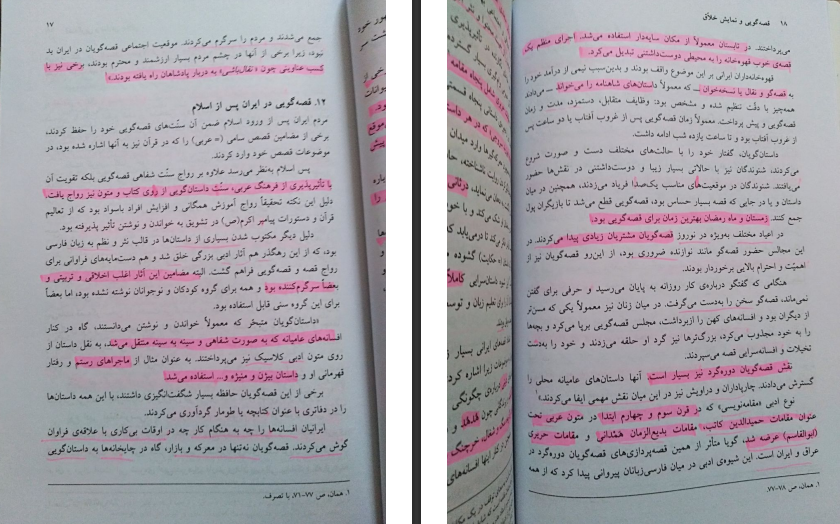 ۱۷
جمع می‌شدند و مردم را سرگرم می‌کردند. موقعیت اجتماعی قصه‌گویان در ایران بد
نبود، زیرا برخی از آنها در چشم مردم بسیار ارزشمند و محترم بودند، برخی نیز با
کسب عناوینی چون «نقال‌باشی» به دربار پادشاهان راه یافته بودند.¹
۱۲. قصه‌گویی در ایران پس از اسلام
مردم ایران پس از ورود اسلام ضمن آن سنّت‌های قصه‌گویی خود را حفظ کردند،
برخی از مضامین قصص سامی (= عربی) را که در قرآن نیز به آنها اشاره شده بود، در
موضوعات قصص خود وارد کردند.
پس اسلام به‌نظر می‌رسد علاوه بر رواج سنّت شفاهی قصه‌گویی بلکه تقویت آن
با تأثیرپذیری از فرهنگ عربی، سنّت داستان‌گویی از روی کتاب و متون نیز رواج یافت.
دلیل این نکته تحقیقاً رواج آموزش همگانی و افزایش افراد باسواد بود که از تعالیم
قرآن و دستورات پیامبر اکرم(ص) در تشویق به خواندن و نوشتن تأثیر پذیرفته بود.
دلیل دیگر مکتوب شدن بسیاری از داستان‌ها در قالب نثر و نظم به زبان فارسی
بود، که از این رهگذر هم آثار ادبی بزرگی خلق شد و هم دست‌مایه‌های فراوانی برای
رواج قصه و قصه‌گویی فراهم گشت. البته مضامین این آثار اغلب اخلاقی و تربیتی و
بعضاً سرگرم‌کننده بود و همه برای گروه کودکان و نوجوانان نوشته نشده بود، اما بعضاً
برای این گروه سنی قابل استفاده بود.
«داستان‌گویان متبحر که معمولاً خواندن و نوشتن می‌دانستند، گاه در کنار
افسانه‌های عامیانه که به صورت شفاهی و سینه به سینه منتقل می‌شد، به نقل داستان از
روی متون ادبی کلاسیک نیز می‌پرداختند. به عنوان مثال از ماجراهای رستم و رفتار
قهرمانی او و داستان بیژن و منیژه و... استفاده می‌شد.
برخی از این قصه‌گویان حافظه بسیار شگفت‌انگیزی داشتند، با این همه داستان‌ها
را در دفاتری با عنوان کتابچه یا طومار گردآوری می‌کردند.
ایرانیان افسانه‌ها را چه به هنگام کار چه در اوقات بی‌کاری با علاقه‌ی فراوان
گوش می‌کردند. قصه‌گویان نه‌تنها در معرکه و بازار، گاه در چایخانه‌ها به داستان‌گویی
۱. همان، ص ۷۷-۷۱، با تصرف.
۱۸ قصه‌گویی و نمایش خلاق
می‌پرداختند. در تابستان معمولاً از مکان سایه‌دار استفاده می‌شد. اجرای منظم یک
قصه‌ی خوب قهوه‌خانه را به محیطی دوست‌داشتنی تبدیل می‌کرد.
قهوه‌خانه‌داران ایرانی بر این موضوع واقف بودند و بدین‌سبب نیمی از درآمد خود را
به قصه‌گو و نقال یا نسخه‌خوان — که معمولاً داستان‌های شاهنامه را می‌خواند — می‌دادند.
همه‌چیز با دقّت تنظیم شده و مشخص بود: وظایف متقابل، دستمزد، مدت و زمان
قصه‌گویی و پیش پرداخت. معمولاً زمان قصه‌گویی پس از غروب آفتاب یا دو ساعت پس
از غروب آفتاب بود و تا ساعت یازده شب ادامه داشت.
داستان‌گویان، گفتار خود را با حالت‌های مختلف دست و صورت شروع
می‌کردند، شنوندگان نیز با حالاتی بسیار زیبا و دوست‌داشتنی در نقش‌ها حضور
می‌یافتند. شنوندگان در موقعیت‌های مناسب یک‌صدا فریاد می‌زدند، همچنین در میان
داستان و یا در جایی که قصه بسیار حساس بود، قصه‌گویی قطع می‌شد تا بازیگران پول
جمع کنند. زمستان و ماه رمضان بهترین زمان برای قصه‌گویی بود.
در اعیاد مختلف به‌ویژه در نوروز قصه‌گویان مشتریان زیادی پیدا می‌کردند. در
این مجالس حضور قصه‌گو مانند نوازنده ضروری بود، از این‌رو قصه‌گویان نیز از
اهمیّت و احترام بالایی برخوردار بودند.
هنگامی که گفتگو درباره‌ی کار روزانه به پایان می‌رسید و حرفی برای گفتن
نمی‌ماند، قصه‌گو سخن را به‌دست می‌گرفت. در میان زنان نیز معمولاً یکی که مسن‌تر
از دیگران بود و افسانه‌های کهن را ازبرداشت، مجلس قصه‌گویی برپا می‌کرد و بچه‌ها
را به خود مجذوب می‌کرد، بزرگ‌ترها نیز گرد او حلقه می‌زدند و خود را به‌دست
تخیلات و افسانه‌سرایی قصه می‌سپردند.
نقش قصه‌گویان دوره‌گرد نیز بسیار است. آنها داستان‌های عامیانه محلی را
گسترش می‌دادند. چارپاداران و دراویش نیز در این میان نقش مهمی ایفا می‌کردند.»¹
نوع ادبی «مقامه‌نویسی» که در قرن سوم و چهارم ابتدا در متون عربی تحت
عنوان مقامات حمیدالدین کاتب، مقامات بدیع‌الزمان همْدانی و مقامات حریری
(ابوالقاسم) عرضه شد، گویا متأثر از همین قصه‌پردازی‌های قصه‌گویان دوره‌گرد در
عراق و ایران است. این شیوه‌ی ادبی در میان فارسی‌زبانان پیروانی پیدا کرد که از همه
۱. همان، ص ۷۸-۷۷.